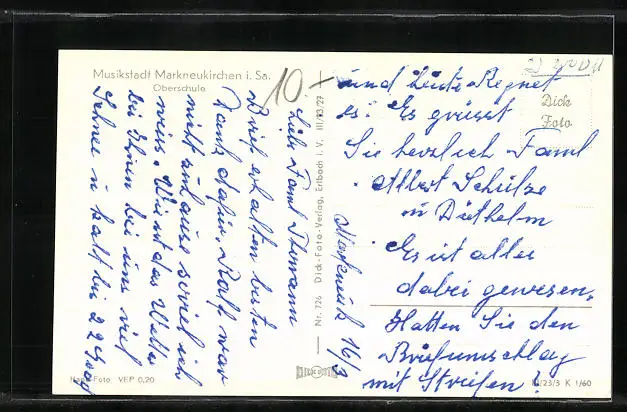 Musikstadt Markneukirchen i. Sa.
Oberschule
10
Markneuk 16/3
Liebe Faml
Brief erhalten besten
Dank dafür. Ralf war
nicht zuhause soviel ich
weiss. Wie ist das Wetter
bei Ihnen bei uns viel
Schnee u kalt bei 22 Grad
und heute Regnet
es. Es grüsst
Sie herzlich Faml
Albert Schütze
u Diethelm
Es ist alles
dabei gewesen.
Hatten Sie den
Briefumschlag
mit Streifen?
Dick
Foto
Nr. 726 Dick-Foto-Verlag, Erlbach i. V. III/23/27
DICK
Foto VEP 0,20
/23/3 K 1/60